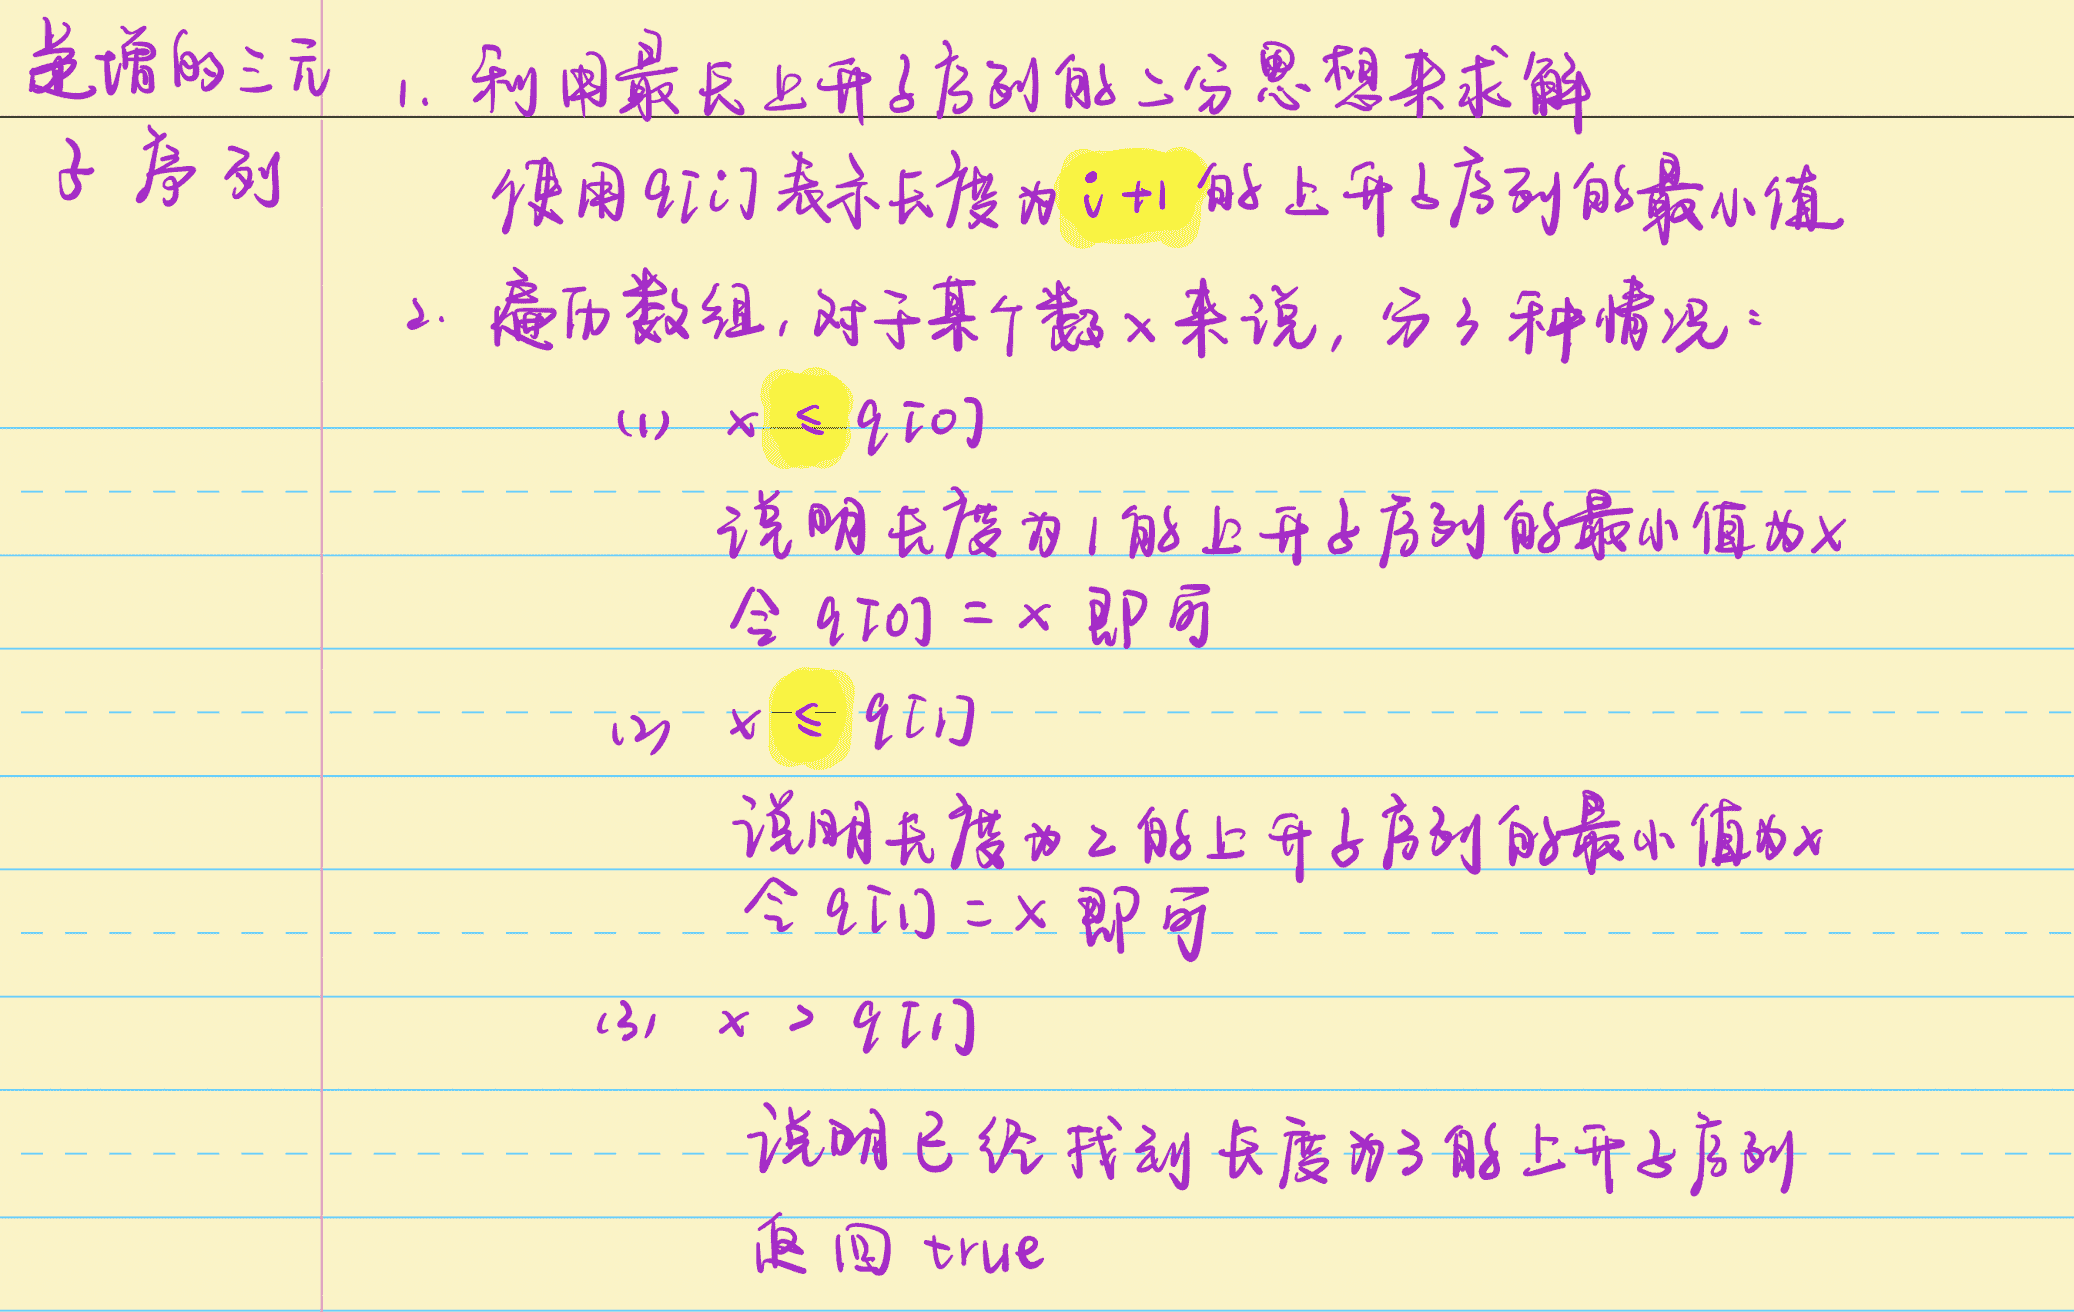 递增的三元
子序列
1. 利用最长上升子序列的二分思想来求解
使用q[i]表示长度为i+1的上升子序列的最小值
2. 遍历数组,对于某个数x来说,分3种情况:
(1) x ≤ q[0]
说明长度为1的上升子序列的最小值为x
令q[0] = x即可
(2) x ≤ q[1]
说明长度为2的上升子序列的最小值为x
令q[1] = x即可
(3) x > q[1]
说明已经找到长度为3的上升子序列
返回true